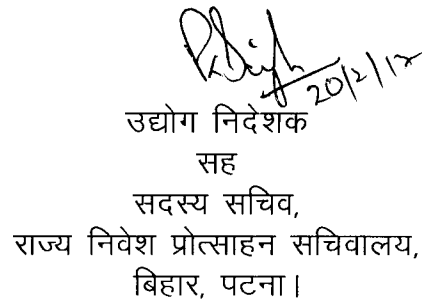 20/2/12
उद्योग निदेशक
सह
सदस्य सचिव,
राज्य निवेश प्रोत्साहन सचिवालय,
बिहार, पटना।